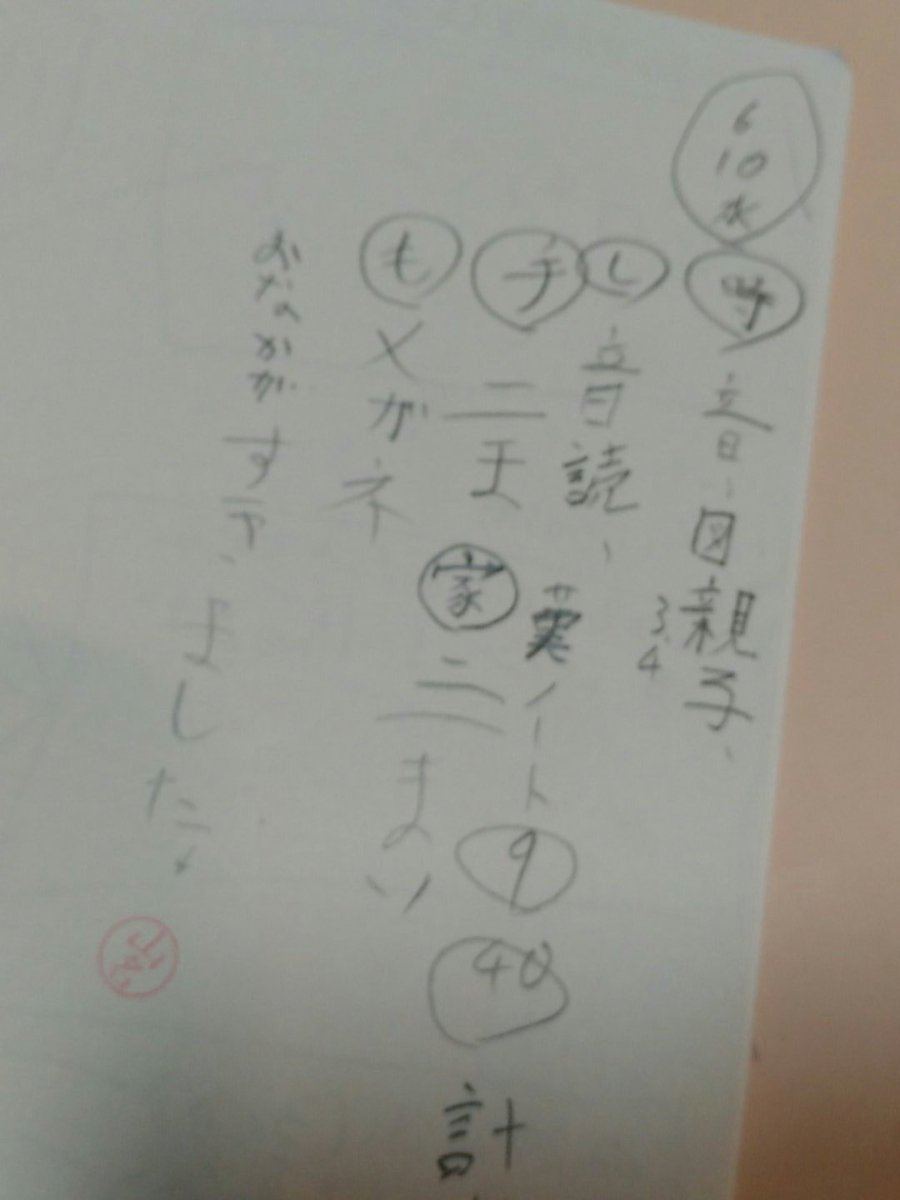 6
10
水
音、図 親子、
3、4
し 音読、漢ノート 9 40 計
手 二ま 家 二まい
も メガネ
おなかがすきました。